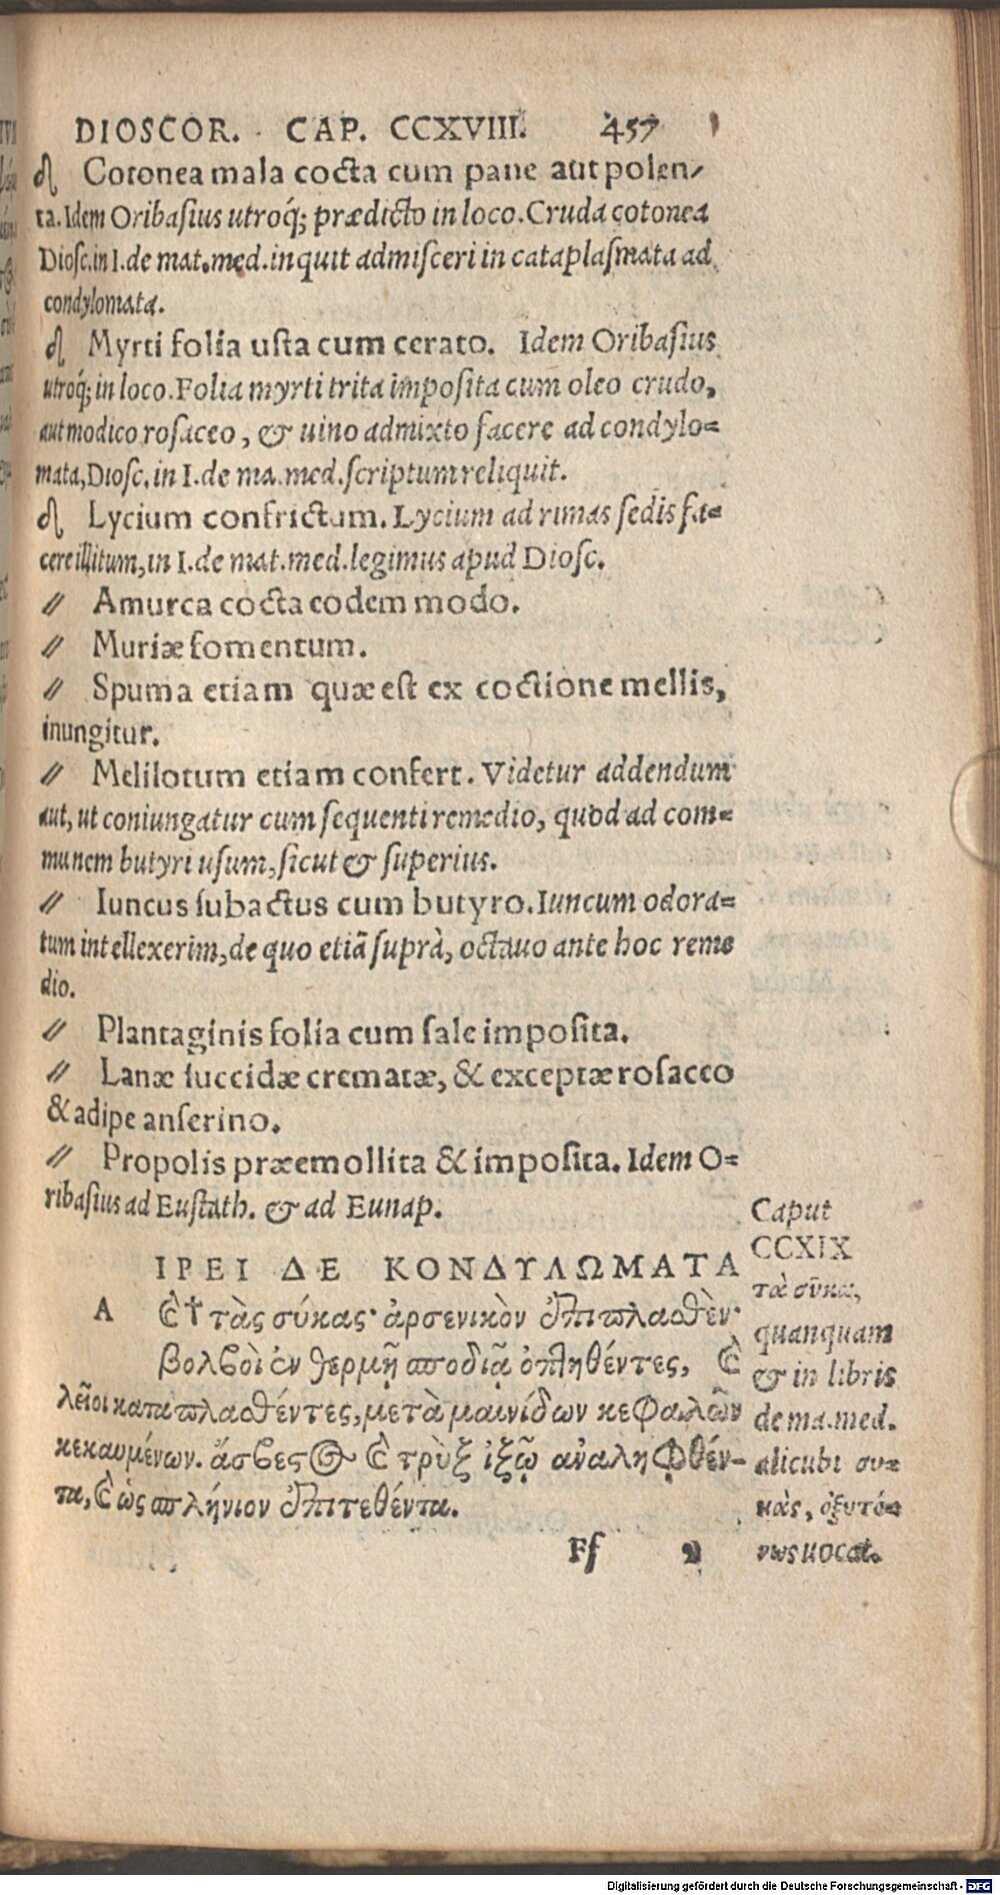 DIOSCOR. CAP. CCXVIII. 457
Cotonea mala cocta cum pane aut polen-
ta. Idem Oribasius utroq; prædicto in loco. Cruda cotonea
Diosc. in I. de mat. med. inquit admisceri in cataplasmata ad
condylomata.
Myrti folia usta cum cerato. Idem Oribasius
utroq; in loco. Folia myrti trita imposita cum oleo crudo,
aut modico rosaceo, & uino admixto facere ad condylo=
mata, Diosc. in I. de ma. med. scriptum reliquit.
Lycium confrictum. Lycium ad rimas sedis fa=
cere illitum, in I. de mat. med. legimus apud Diosc.
// Amurca cocta eodem modo.
// Muriæ fomentum.
// Spuma etiam quæ est ex coctione mellis,
inungitur.
// Melilotum etiam confert. Videtur addendum
aut, ut coniungatur cum sequenti remedio, quod ad com=
munem butyri usum, sicut & superius.
// Iuncus subactus cum butyro. Iuncum odora=
tum intellexerim, de quo etiã suprà, octauo ante hoc reme
dio.
// Plantaginis folia cum sale imposita.
// Lanæ succidæ crematæ, & exceptæ rosaceo
& adipe anserino.
// Propolis præemollita & imposita. Idem O=
ribasius ad Eustath. & ad Eunap.
ΙΡΕΙ ΔΕ ΚΟΝΔΥΛΩΜΑΤΑ
Α καὶ † τὰς σύκας· ἀρσενικὸν ἐπιπλασθὲν·
βολβοὶ ἐν θερμῇ σποδιᾷ ὀπτηθέντες, καὶ
λεῖοι καταπλασθέντες, μετὰ μαινίδων κεφαλῶν
κεκαυμένων. ἄσβεστος καὶ τρὺξ ἰξῷ ἀναληφθέν-
τα, καὶ ὡς σπλήνιον ἐπιτεθέντα.
Ff 2
Caput
CCXIX
τὰ σῦκα,
quanquam
& in libris
de ma. med.
alicubi συ=
κὰς, ὀξυτό=
νως uocat.
Digitalisierung gefördert durch die Deutsche Forschungsgemeinschaft - DFG